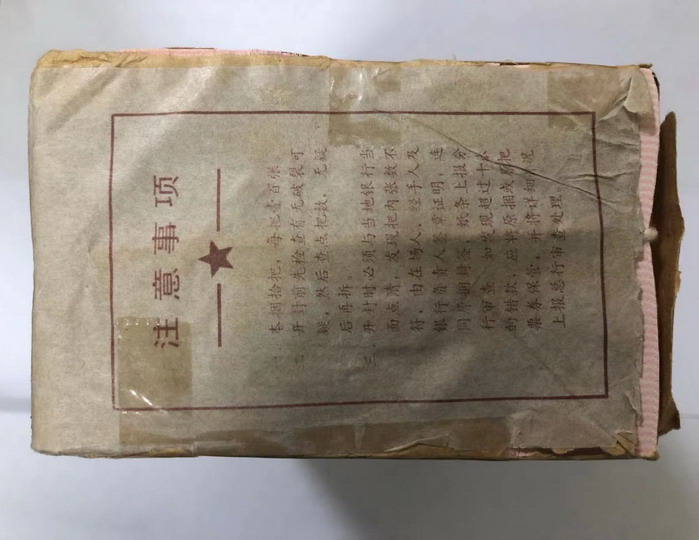 注意事项
一、本捆拾把，每把壹百张。
二、开封前先检查有无破裂可
疑，然后查点把数，无疑
后再拆。
三、开封时必须与当地银行当
面点清，发现把内张数不
符，由在场人、经手人及
银行负责人签章证明，连
同原捆封签、纸条上报分
行审查。如发现超过十张
的错款，应将原捆或原把
票券保管，并将详细情况
上报总行审查处理。